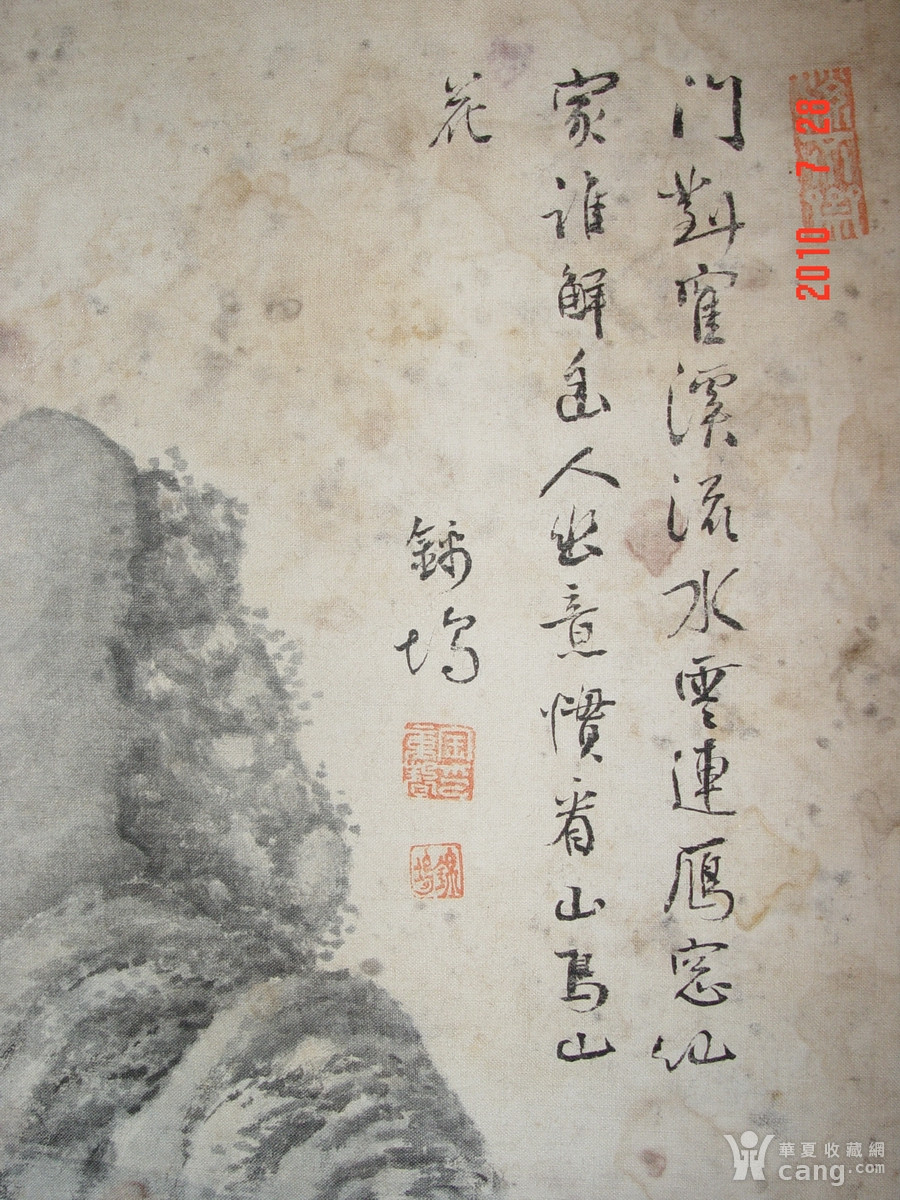 門對寉溪流水雲連鴈窓仙
家誰解幽人幽意慣看山鳥山
花
塢
2010 7 28
華夏收藏網
cang.com